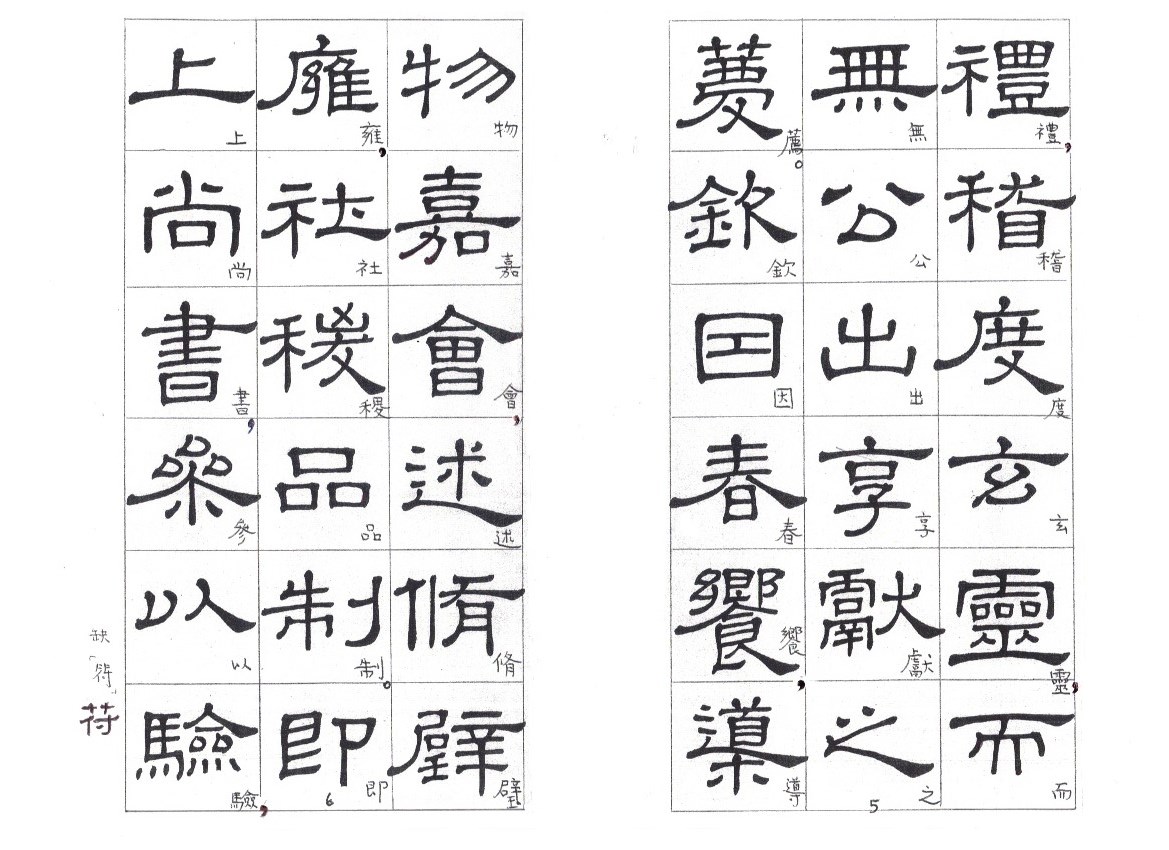 禮稽度玄靈而
禮，稽度玄靈，而
無公出享獻之
無公出享獻之
薦欽因春饗導
薦。欽因春饗，導
5
物嘉會述脩璧
物嘉會，述脩璧
雍社稷品制即
雍，社稷品制。即
上尚書參以驗
上尚書，參以驗，
6
缺「符」
符